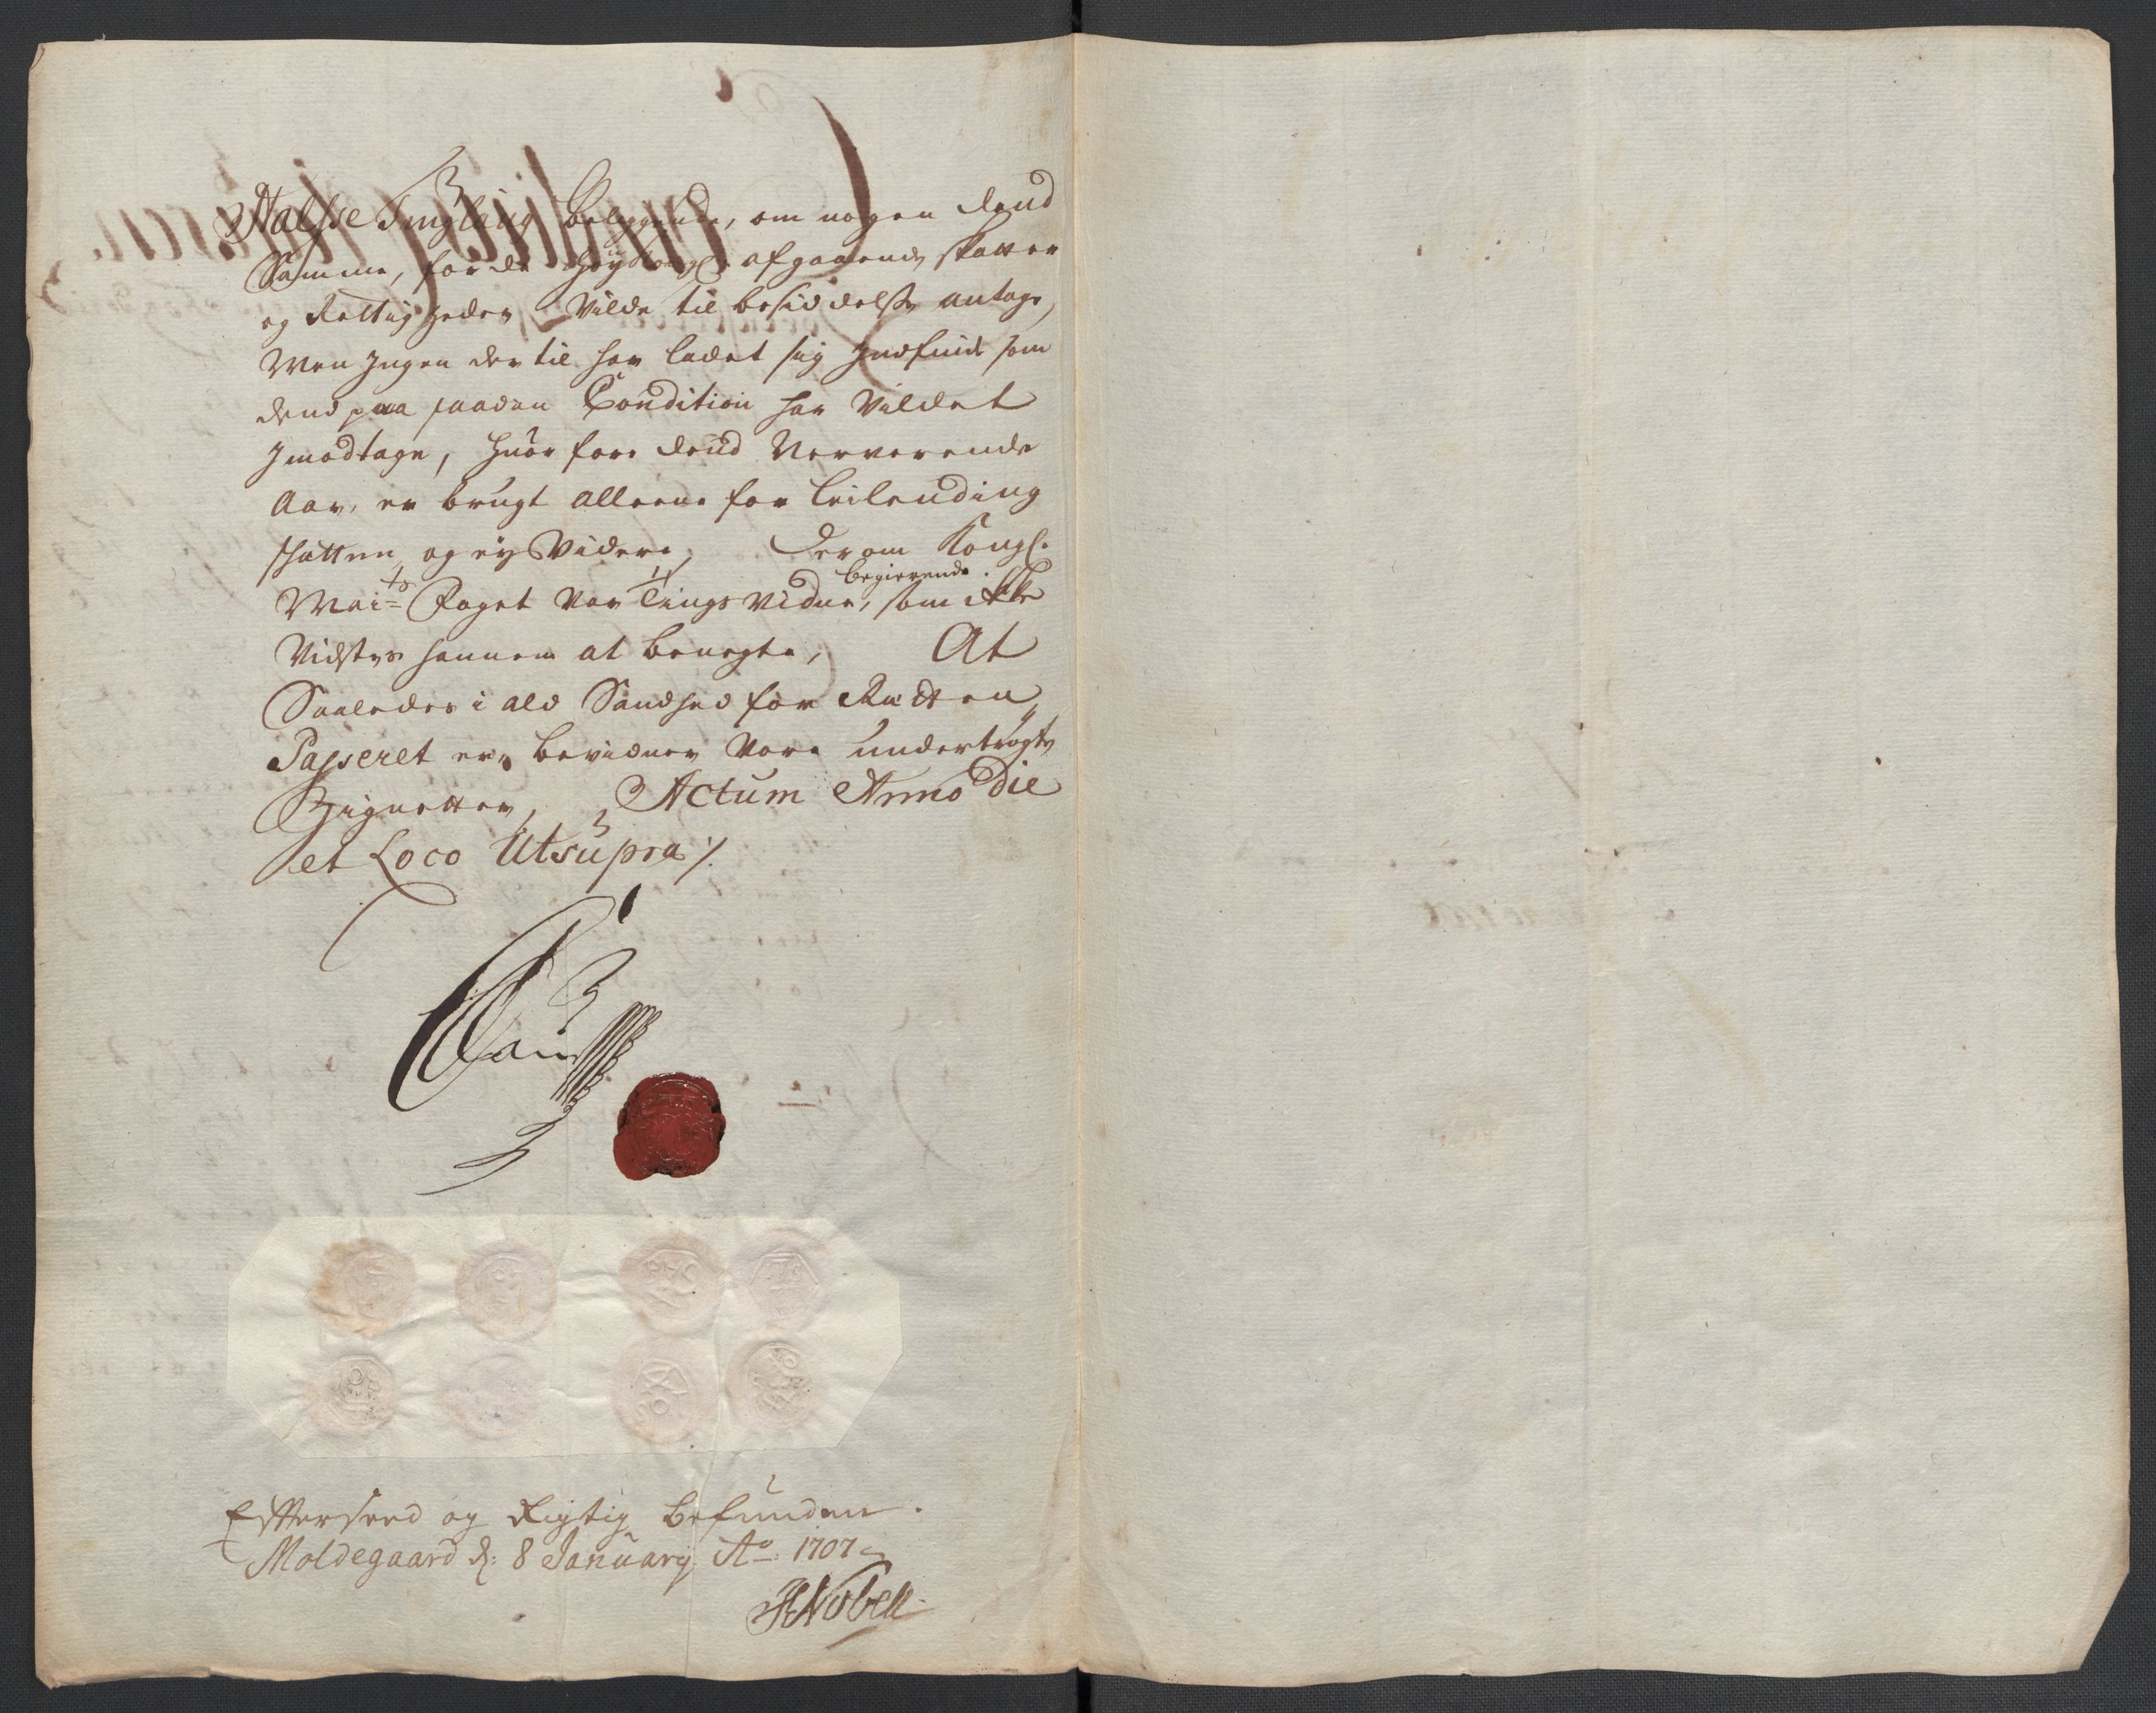 Halsse Tinglaug beliggende, om nogen dend
Samme, for de afgaaende skatter
og Rettigheder Vilde til besiddelse antage,
Men Ingen der til har ladet sig Indfinde som
dend paa saadan Condition har Vildet
Imodtage, huorfore dend Nerverende
Aar, er brugt alleene for Leilending
schatten og ey Videre, Derom Kongl.
Mai=ts Foget var Tings Vidne, begierende som ikke
Vidstes hannem at benegte, At
Saaledes i ald Sandhed for Retten
Passeret er, bevidner Vore undertrygte
Zignetter, Actum Anno Die
et Loco Utsupra ./.
Effterseed og Rigtig befunden.
Moldegaard d: 8 January Ao 1707
HNobell